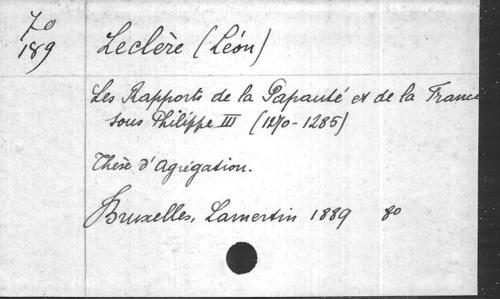 70
189
Leclère (Léon)
Les Rapports de la Papauté et de la France
sous Philippe III (1270-1285)
Thèse d'Agrégation.
Bruxelles, Lamertin 1889 80